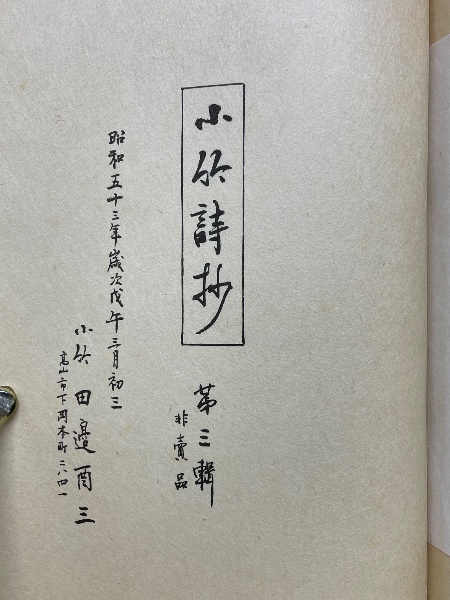 小竹詩抄
第三輯
非賣品
昭和五十三年歲次戊午三月初三
小竹 田邉酉三
高山市下岡本町二八四一